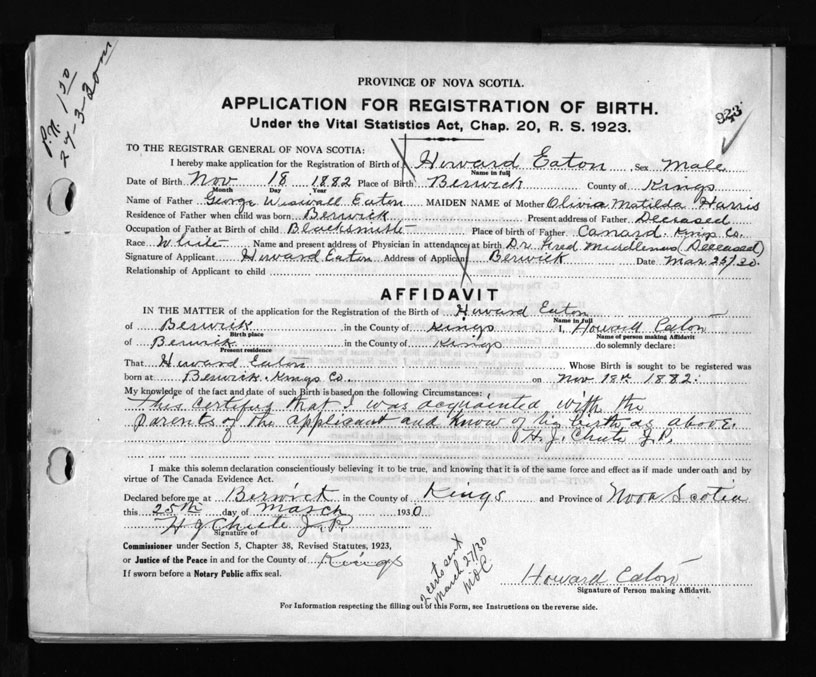 P.N. 130
24-3-30 m
PROVINCE OF NOVA SCOTIA.
APPLICATION FOR REGISTRATION OF BIRTH.
Under the Vital Statistics Act, Chap. 20, R. S. 1923.
923
TO THE REGISTRAR GENERAL OF NOVA SCOTIA:
I hereby make application for the Registration of Birth of Howard Eaton, Sex Male
Name in full
Date of Birth Nov 18 1882 Place of Birth Berwick County of Kings
Month Day Year
Name of Father George Wiswall Eaton MAIDEN NAME of Mother Olivia Matilda Harris
Residence of Father when child was born Berwick Present address of Father Deceased
Occupation of Father at Birth of child Blacksmith Place of birth of Father Canard Kings Co.
Race White Name and present address of Physician in attendance at birth Dr. Fred Middlemas (Deceased)
Signature of Applicant Howard Eaton Address of Applicant Berwick Date Mar 25/30.
Relationship of Applicant to child
AFFIDAVIT
IN THE MATTER of the application for the Registration of the Birth of Howard Eaton
Name in full
of Berwick in the County of Kings I, Howard Eaton
Birth place Name of person making Affidavit
of Berwick in the County of Kings do solemnly declare:
Present residence
That Howard Eaton Whose Birth is sought to be registered was
born at Berwick Kings Co. on Nov 18th 1882.
My knowledge of the fact and date of such Birth is based on the following Circumstances:
This certifies that I was acquainted with the
parents of the applicant and know of his birth as above.
H. J. Chute J.P.
I make this solemn declaration conscientiously believing it to be true, and knowing that it is of the same force and effect as if made under oath and by
virtue of The Canada Evidence Act.
Declared before me at Berwick in the County of Kings and Province of Nova Scotia
this 25th day of March 1930
H J Chute J.P.
Signature of
Commissioner under Section 5, Chapter 38, Revised Statutes, 1923,
or Justice of the Peace in and for the County of Kings
If sworn before a Notary Public affix seal.
2 certs sent
March 27/30
Howard Eaton
Signature of Person making Affidavit.
For Information respecting the filling out of this Form, see Instructions on the reverse side.